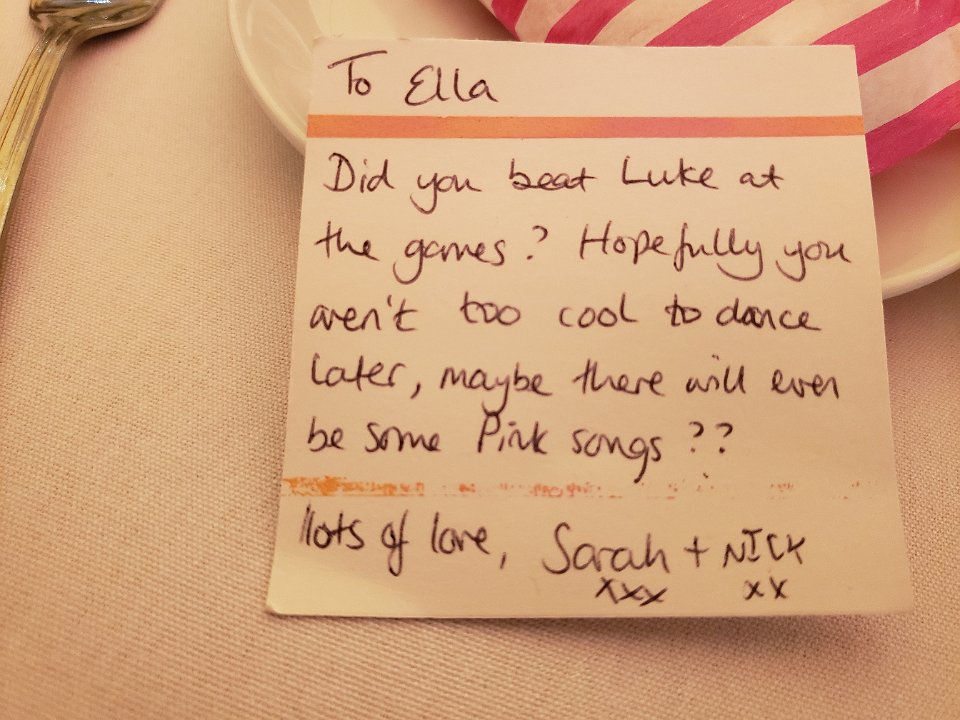 To Ella
Did you beat Luke at
the games? Hopefully you
aren't too cool to dance
later, maybe there will even
be some Pink songs??
lots of love, Sarah + NICK
xxx xx